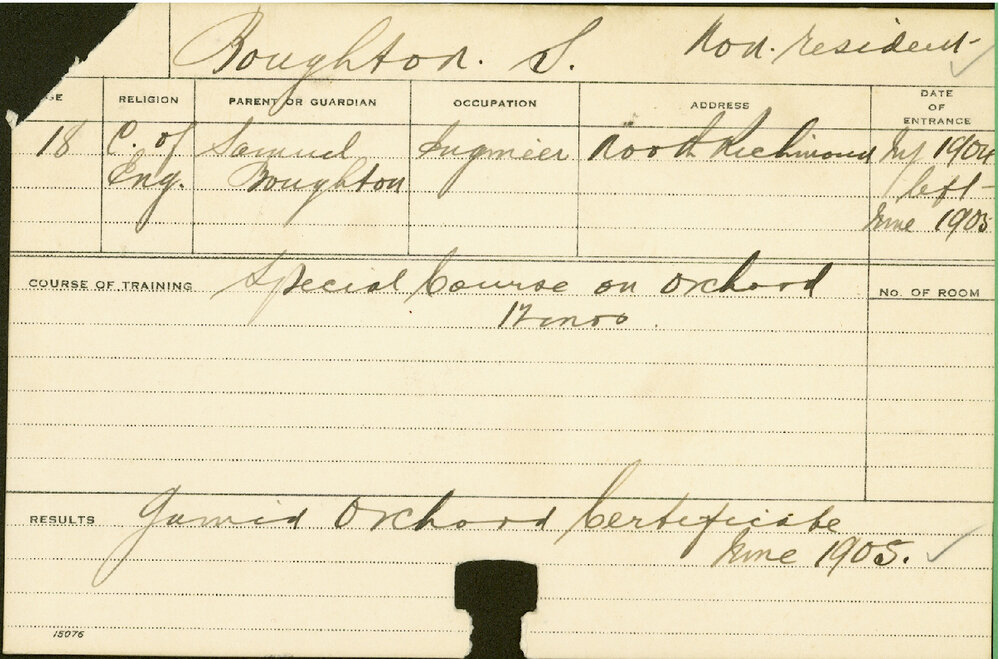 Boughton. S. Non-resident
GE RELIGION PARENT OR GUARDIAN OCCUPATION ADDRESS DATE OF ENTRANCE
18 C. of Samuel Engineer North Richmond 1904
Eng. Boughton left
June 1905
COURSE OF TRAINING Special Course on Orchard No. OF ROOM
12 mos
RESULTS Gained Orchard Certificate
June 1905.
15076